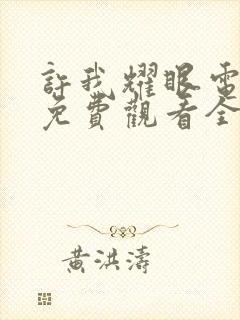 許我耀眼電
免費觀看全
黃洪濤